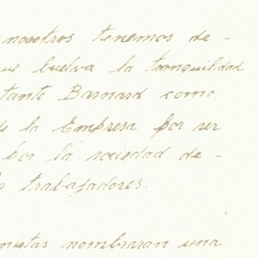 nosotros tenemos de-
ue buelva la tranquilidad
tante Barnard como
de la Empresa por ser
por la sociedad de-
s trabajadores.
nistas nombraran una